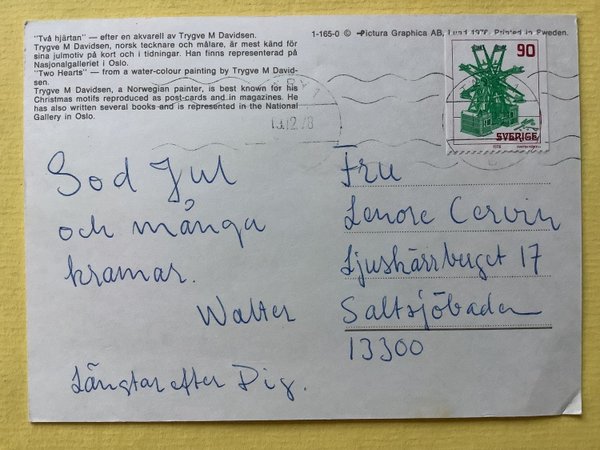 "Två hjärtan" — efter en akvarell av Trygve M Davidsen.
Trygve M Davidsen, norsk tecknare och målare, är mest känd för
sina julmotiv på kort och i tidningar. Han finns representerad på
Nasjonalgalleriet i Oslo.
"Two Hearts" — from a water-colour painting by Trygve M David-
sen.
Trygve M Davidsen, a Norwegian painter, is best known for his
Christmas motifs reproduced as post-cards and in magazines. He
has also written several books and is represented in the National
Gallery in Oslo.
1-165-0 © Pictura Graphica AB, Lund 1976. Printed in Sweden.
90
SVERIGE
1978
12.78
God Jul
och många
kramar.
Walter
Längtar efter Dig.
Fru
Lenore Cervin
Ljuskärrberget 17
Saltsjöbaden
13300